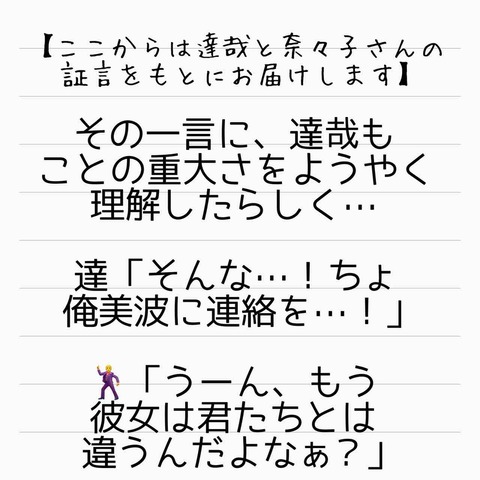 【ここからは達哉と奈々子さんの
証言をもとにお届けします】
その一言に、達哉も
ことの重大さをようやく
理解したらしく…
達「そんな…！ちょ
俺美波に連絡を…！」
🕺「うーん、もう
彼女は君たちとは
違うんだよなぁ？」